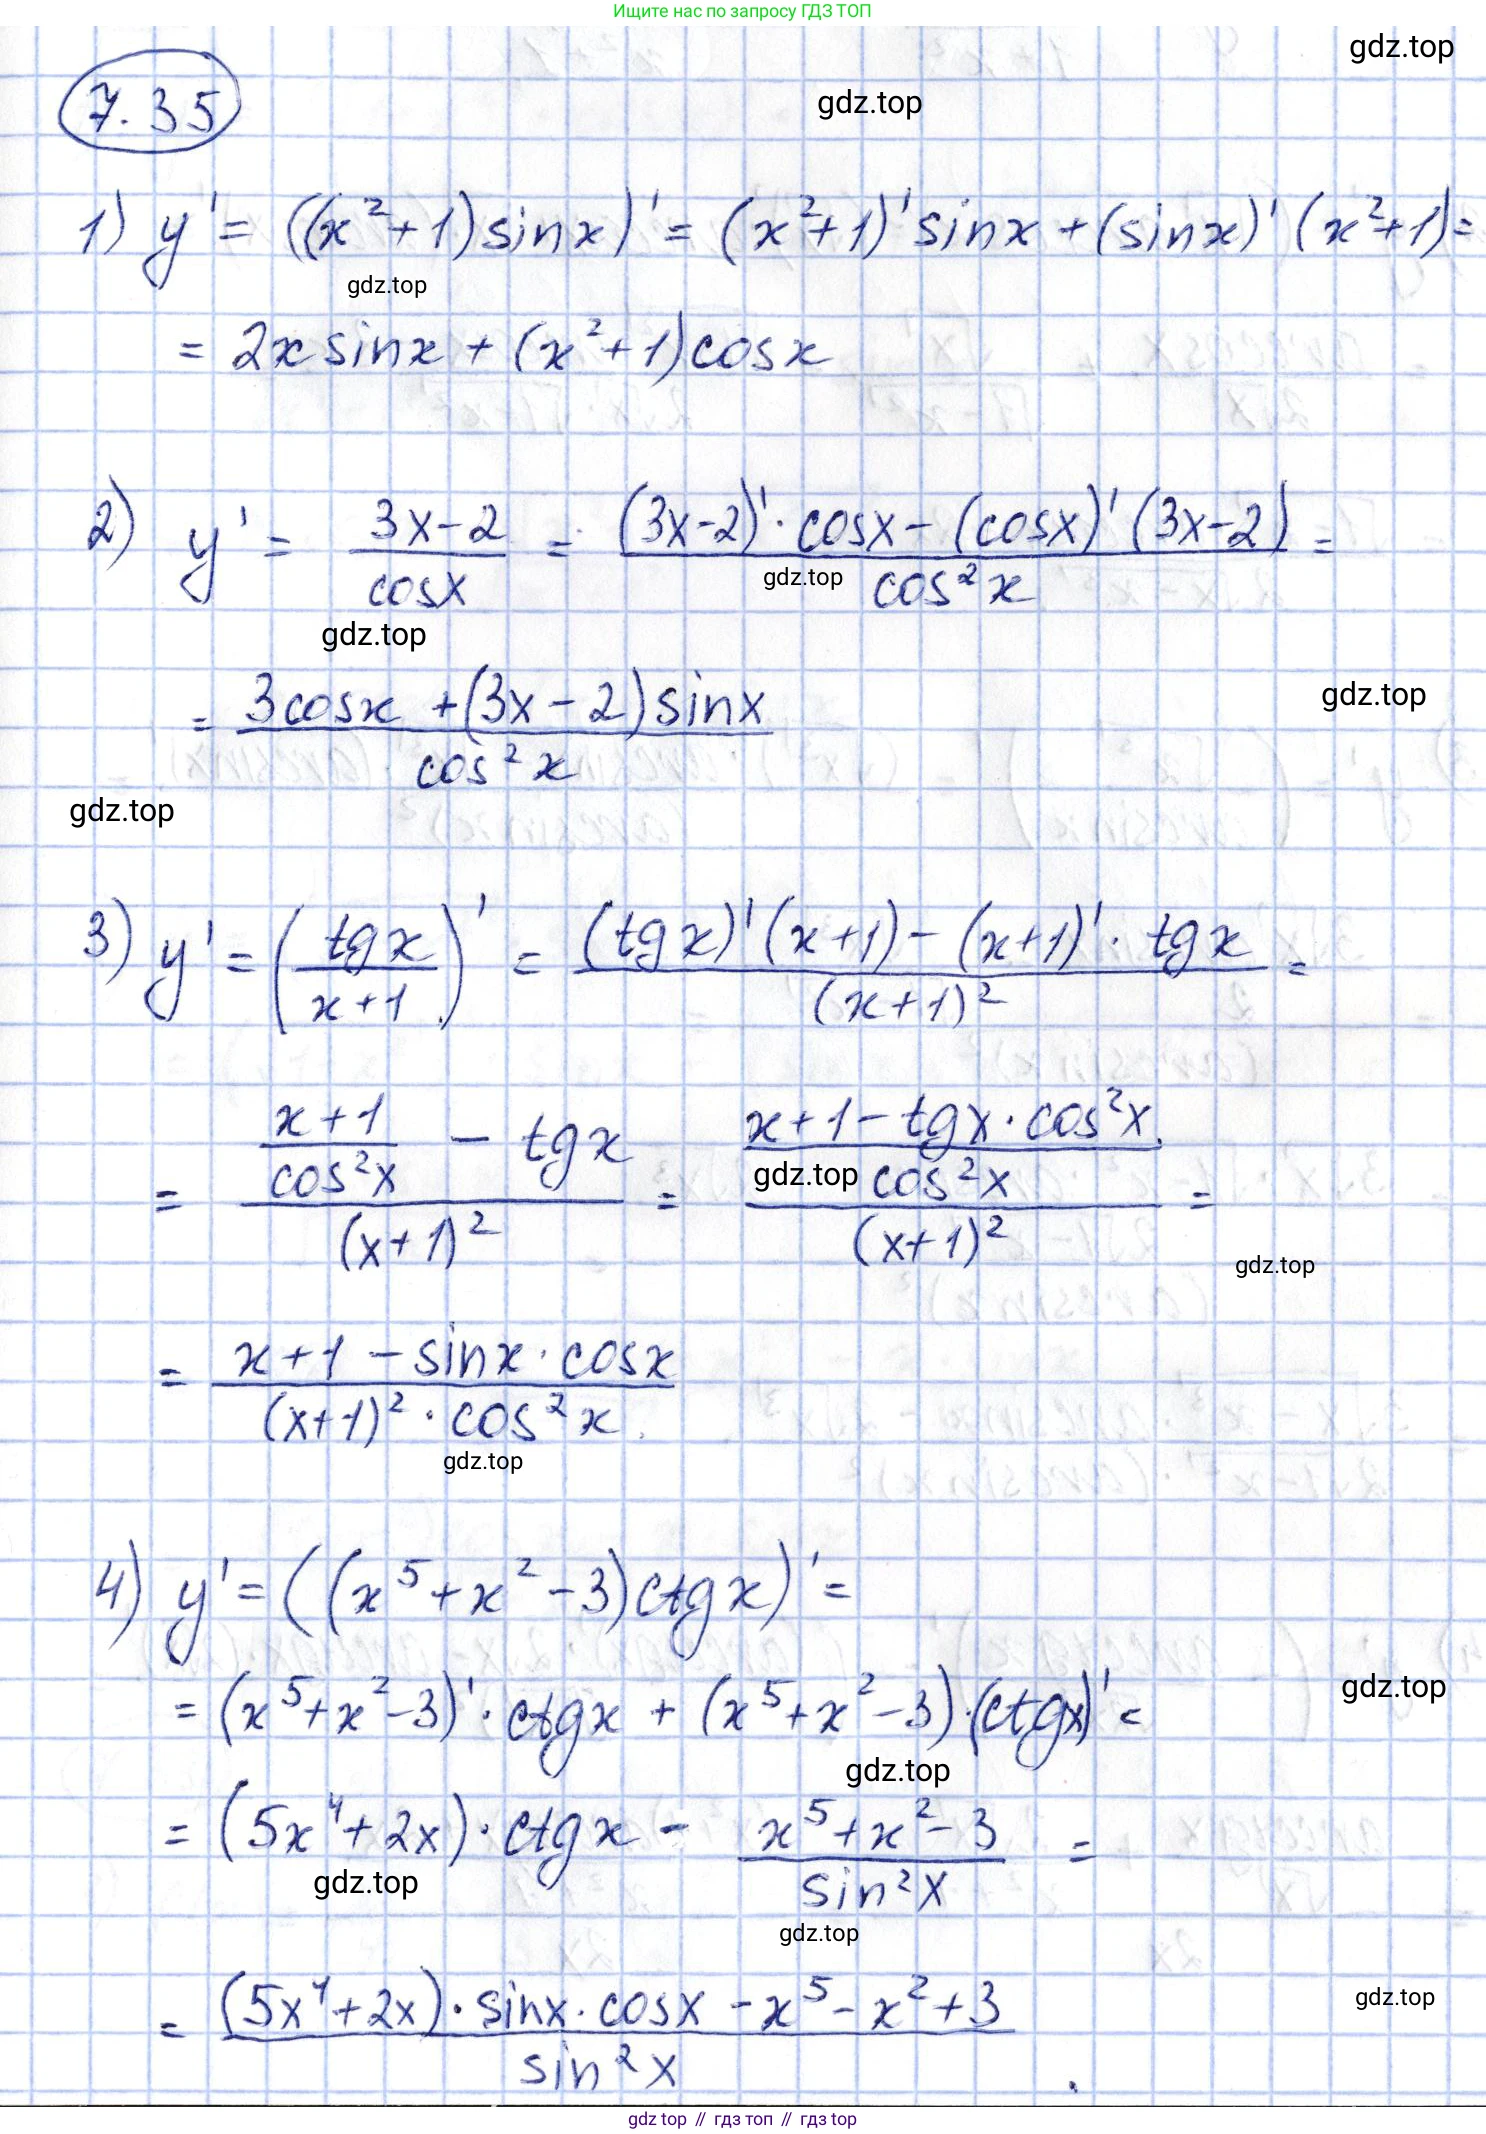 Ищите нас по запросу ГДЗ ТОП
gdz.top
gdz.top
7.35
1) y' = ((x²+1) sin x)' = (x²+1)' sin x + (sin x)' (x²+1) =
gdz.top
= 2x sin x + (x²+1) cos x
2) y' = \frac{3x-2}{cos x} = \frac{(3x-2)' · cos x - (cos x)' (3x-2)}{cos² x} =
gdz.top
gdz.top
= \frac{3cos x + (3x-2) sin x}{cos² x}
gdz.top
gdz.top
3) y' = (\frac{tg x}{x+1})' = \frac{(tg x)' (x+1) - (x+1)' · tg x}{(x+1)²} =
= \frac{\frac{x+1}{cos² x} - tg x}{(x+1)²} = \frac{\frac{x+1 - tg x · cos² x}{cos² x}}{(x+1)²} =
gdz.top
gdz.top
= \frac{x+1 - sin x · cos x}{(x+1)² · cos² x}.
gdz.top
4) y' = ((x⁵+x²-3) ctg x)' =
= (x⁵+x²-3)' · ctg x + (x⁵+x²-3) · (ctg x)' =
gdz.top
gdz.top
= (5x⁴+2x) · ctg x - \frac{x⁵+x²-3}{sin² x} =
gdz.top
gdz.top
= \frac{(5x⁴+2x) · sin x · cos x - x⁵ - x² + 3}{sin² x}.
gdz.top
gdz top // гдз топ // gdz top